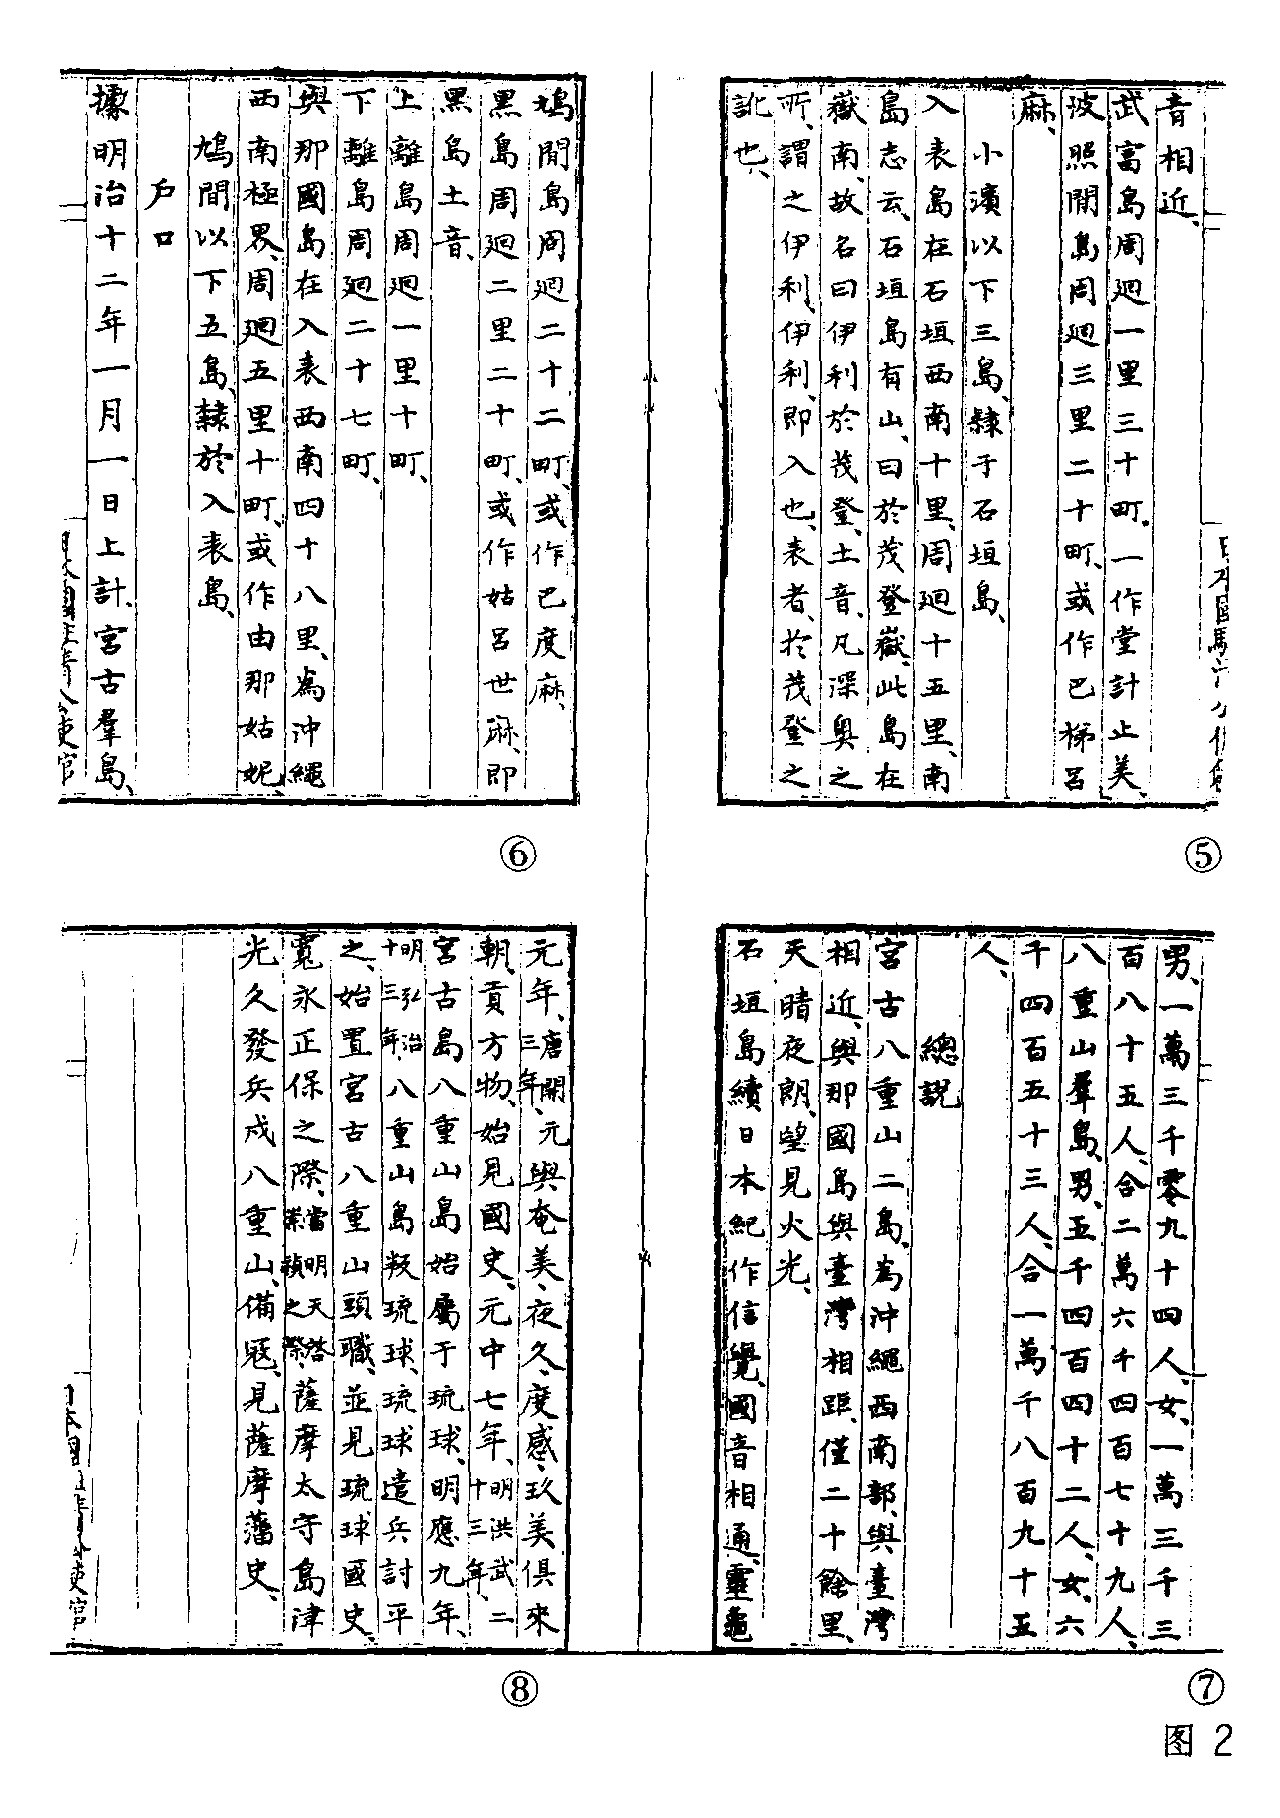 音相近、
武富島周廻一里三十町、一作堂計止美、
波照間島周廻三里二十町、或作巴梯呂
麻、
小濱以下三島、隸于石垣島、
入表島在石垣西南十里、周廻十五里、南
島志云、石垣島有山、曰於茂登嶽、此島在
嶽南、故名曰伊利於茂登、土音、凡深奥之
所、謂之伊利、伊利、即入也、表者、於茂登之
訛也、
⑤
鳩間島周廻二十二町、或作巴度麻、
黑島周廻二里二十町、或作姑呂世麻、即
黑島土音、
上離島周廻一里十町、
下離島周廻二十七町、
與那國島在入表西南四十八里、為沖繩
西南極界、周廻五里十町、或作由那姑妮、
鳩間以下五島、隸於入表島、
户口
據明治十二年一月一日上計、宮古羣島、
⑥
男、一萬三千零九十四人、女、一萬三千三
百八十五人、合二萬六千四百七十九人、
八重山羣島、男、五千四百四十二人、女、六
千四百五十三人、合一萬千八百九十五
人、
總說
宮古八重山二島、為沖繩西南部、與臺灣
相近、與那國島與臺灣相距、僅二十餘里、
天晴夜朗、望見火光、
石垣島續日本紀作信覺、國音相通、靈龜
⑦
元年、唐開元三年、與奄美、夜久、度感、玖美俱來
朝、貢方物、始見國史、元中七年、明洪武二十三年、
宮古島八重山島始屬于琉球、明應九年、
明弘治十三年、八重山島叛琉球、琉球遣兵討平
之、始置宮古八重山頭職、並見琉球國史、
寬永正保之際、當明天啓崇禎之際、薩摩太守島津
光久發兵戍八重山、備寇、見薩摩藩史、
日本國駐清公使官
⑧
图2